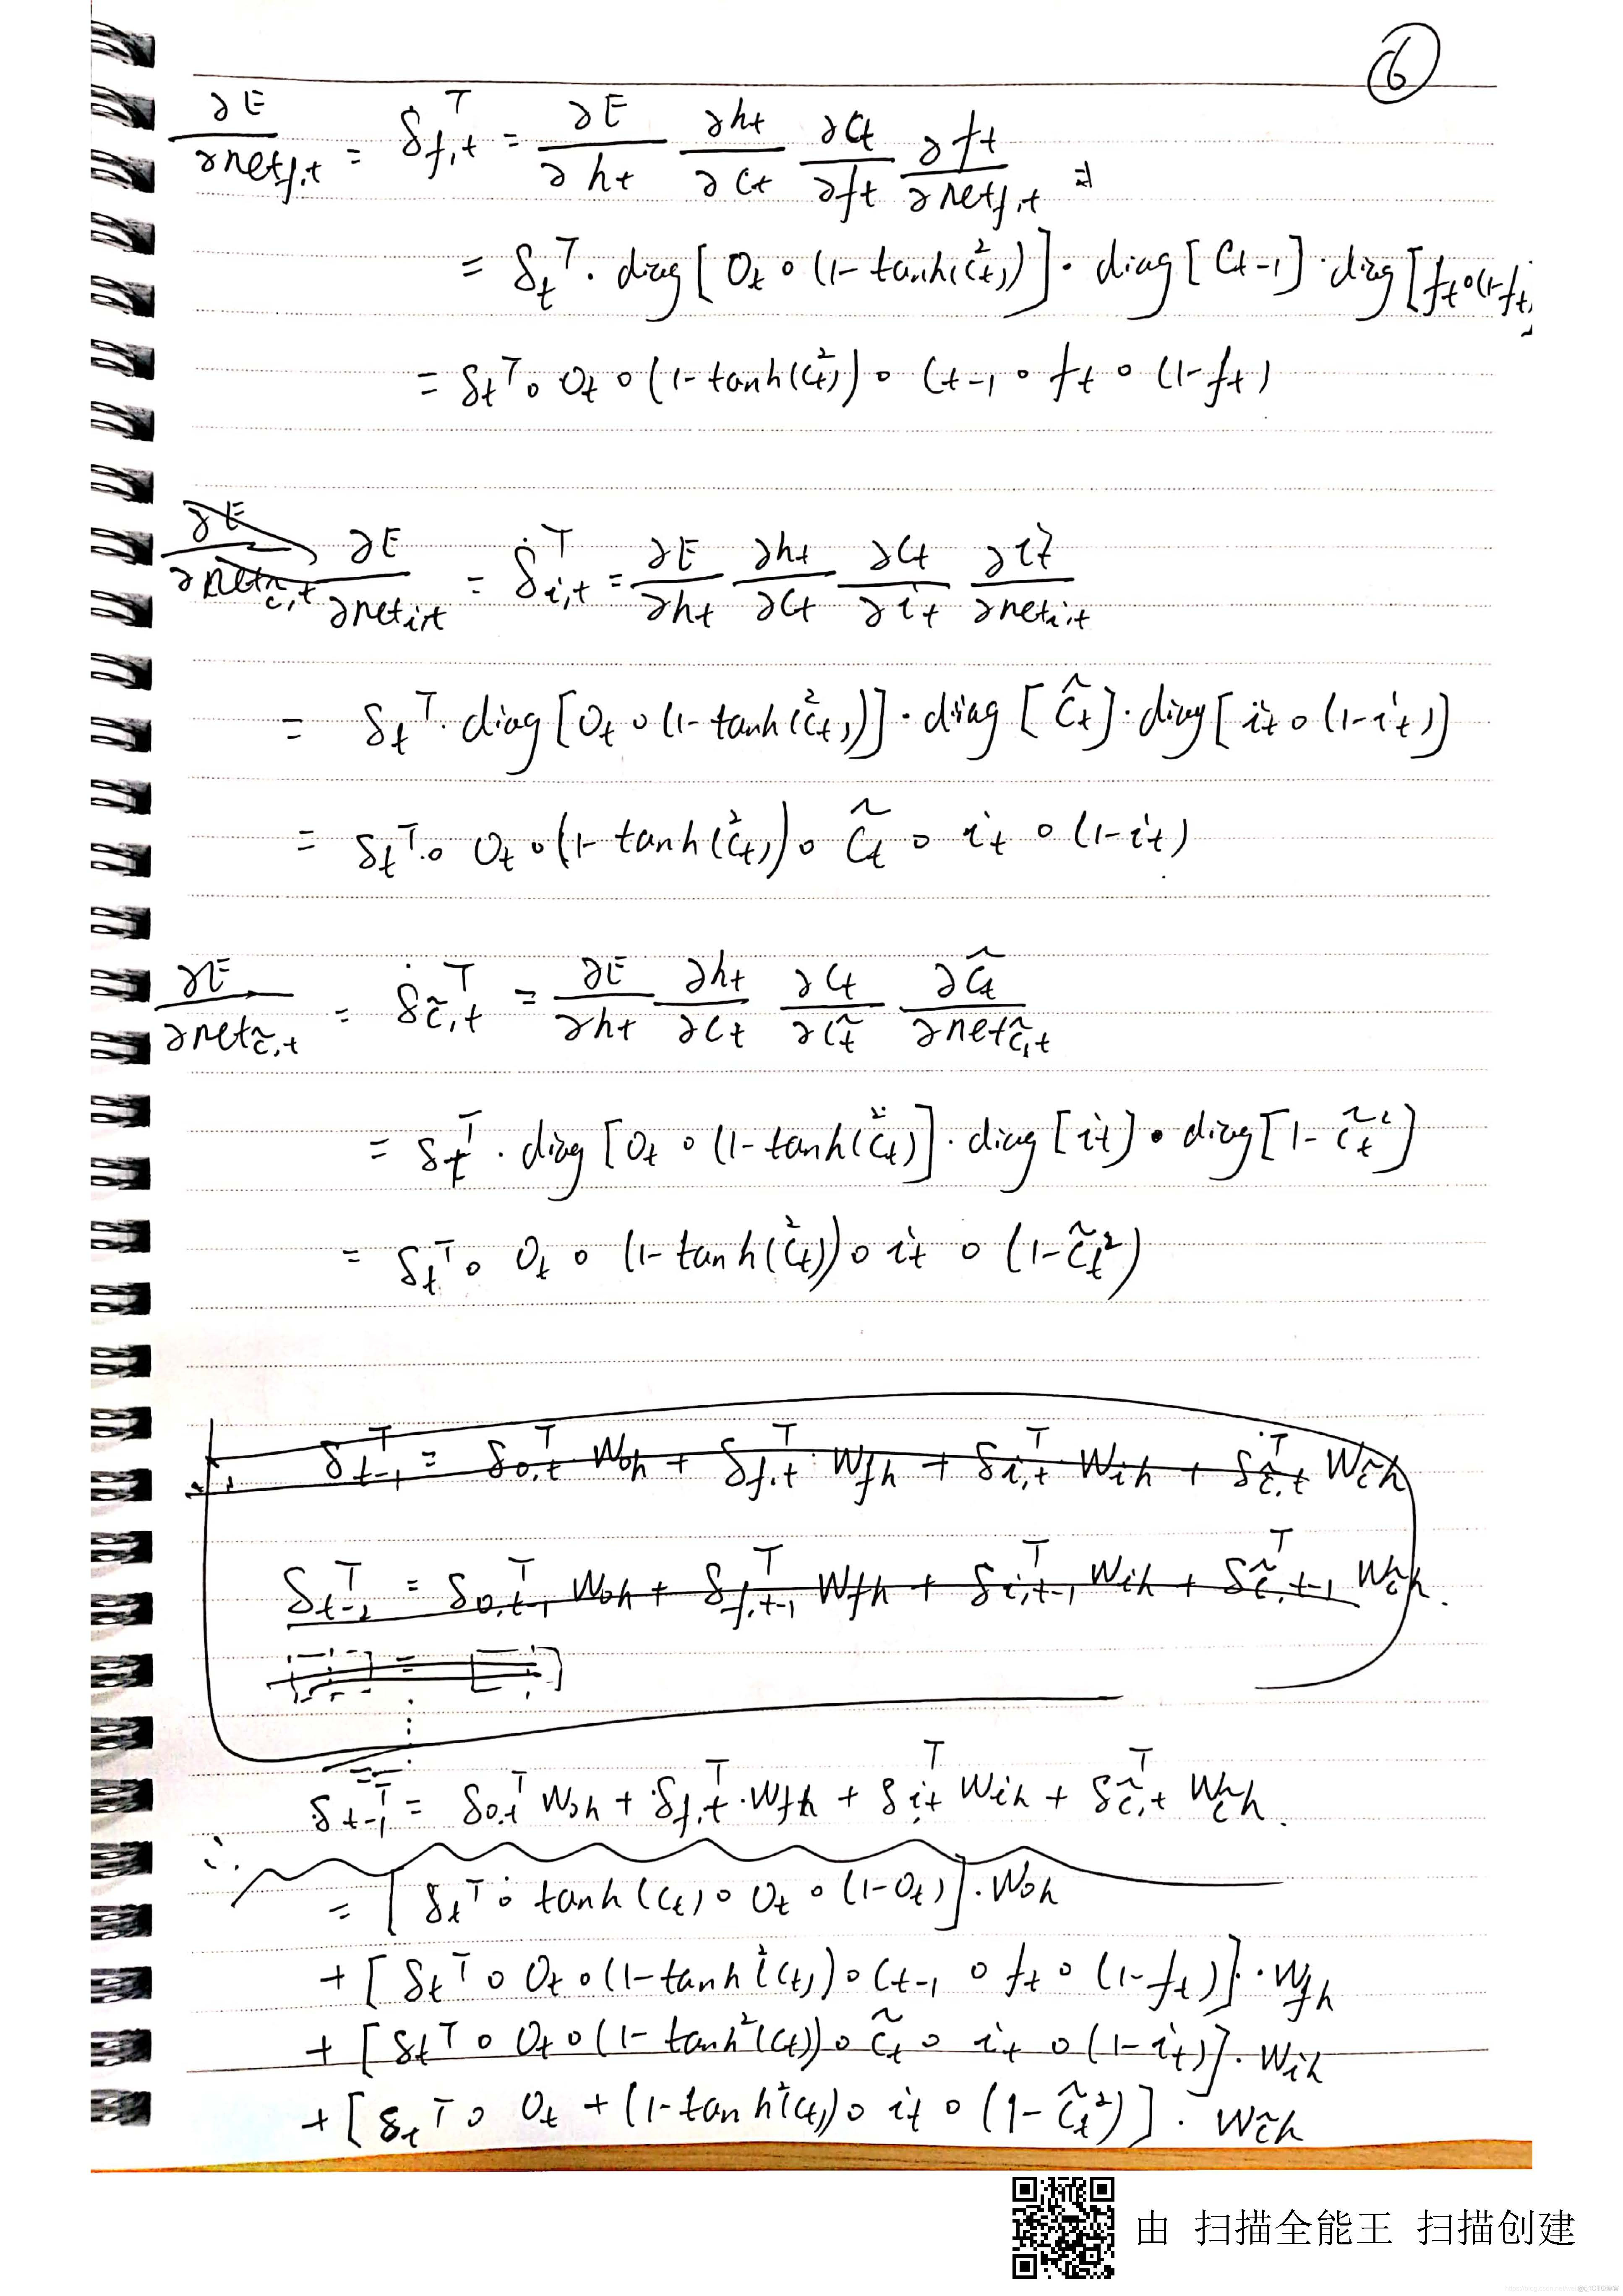 ⑥
∂E/∂net_{f,t} = δ_{f,t}^T = ∂E/∂h_t ∂h_t/∂c_t ∂c_t/∂f_t ∂f_t/∂net_{f,t} ⇒
= δ_t^T · diag[o_t ∘ (1-tanh²(c_t))] · diag[c_{t-1}] · diag[f_t∘(1-f_t)
= δ_t^T ∘ o_t ∘ (1-tanh²(c_t)) ∘ c_{t-1} ∘ f_t ∘ (1-f_t)
∂E/∂net_{c̃,t} ∂E/∂net_{i,t} = δ_{i,t}^T = ∂E/∂h_t ∂h_t/∂c_t ∂c_t/∂i_t ∂i_t/∂net_{i,t}
= δ_t^T · diag[o_t ∘ (1-tanh²(c_t))] · diag[c̃_t] · diag[i_t ∘ (1-i_t)]
= δ_t^T ∘ o_t ∘ (1-tanh²(c_t)) ∘ c̃_t ∘ i_t ∘ (1-i_t)
∂E/∂net_{c̃,t} = δ_{c̃,t}^T = ∂E/∂h_t ∂h_t/∂c_t ∂c_t/∂c̃_t ∂c̃_t/∂net_{c̃,t}
= δ_t^T · diag[o_t ∘ (1-tanh²(c_t)] · diag[i_t] · diag[1-c̃_t²]
= δ_t^T ∘ o_t ∘ (1-tanh²(c_t)) ∘ i_t ∘ (1-c̃_t²)
δ_{t-1}^T = δ_{o,t}^T W_{oh} + δ_{f,t}^T W_{fh} + δ_{i,t}^T W_{ih} + δ_{c̃,t}^T W_{c̃h}
δ_{t-2}^T = δ_{o,t-1}^T W_{oh} + δ_{f,t-1}^T W_{fh} + δ_{i,t-1}^T W_{ih} + δ_{c̃,t-1}^T W_{c̃h}.
δ_{t-1}^T = δ_{o,t}^T W_{oh} + δ_{f,t}^T · W_{fh} + δ_{i,t}^T W_{ih} + δ_{c̃,t}^T W_{c̃h}.
∴ = [δ_t^T ∘ tanh(c_t) ∘ o_t ∘ (1-o_t)] · W_{oh}
+ [δ_t^T ∘ o_t ∘ (1-tanh²(c_t)) ∘ c_{t-1} ∘ f_t ∘ (1-f_t)] · W_{fh}
+ [δ_t^T ∘ o_t ∘ (1-tanh²(c_t)) ∘ c̃_t ∘ i_t ∘ (1-i_t)] · W_{ih}
+ [δ_t^T ∘ o_t + (1-tanh²(c_t) ∘ i_t ∘ (1-c̃_t²)] · W_{c̃h}
由 扫描全能王 扫描创建
@51CTO博客